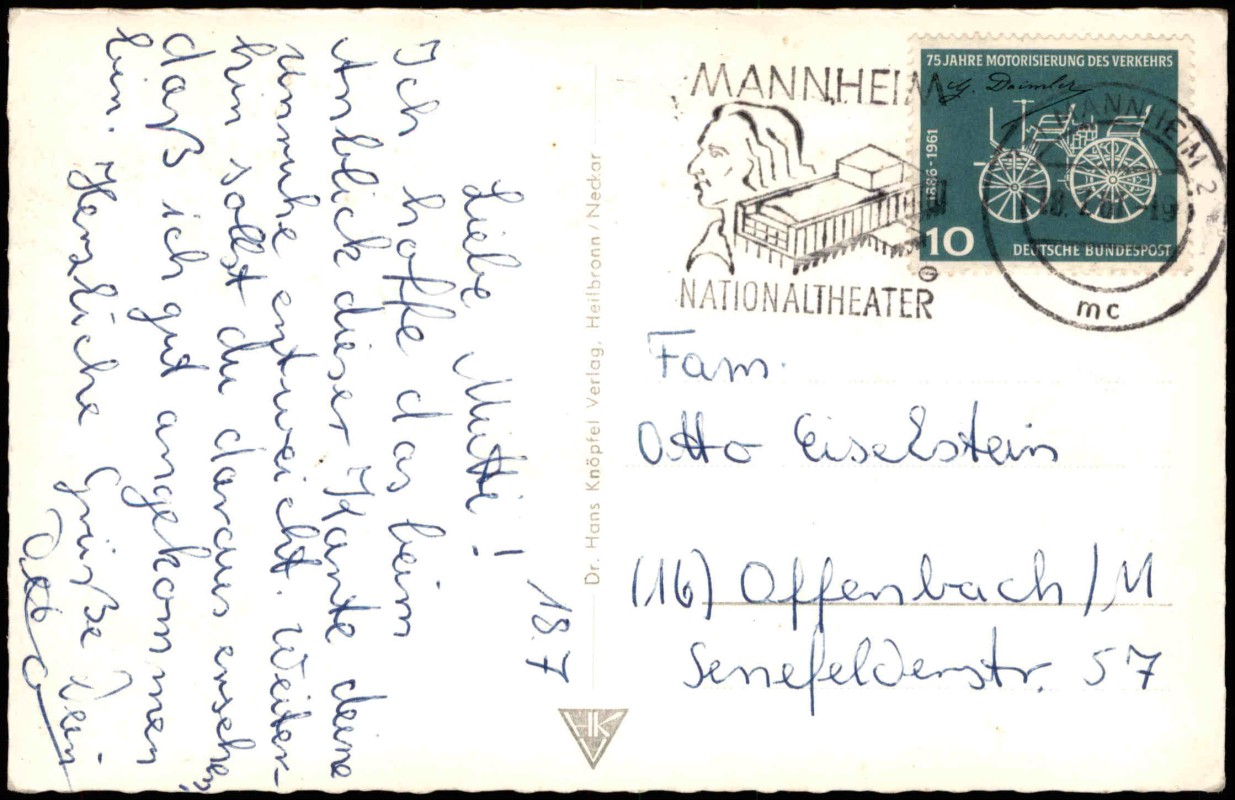 18.7
Liebe Mutti!
Ich hoffe das beim
Anblick dieser Karte deine
Unruhe entweicht. Weiter-
hin sollst du daraus ersehen,
daß ich gut angekommen
bin. Herzliche Grüße Dein
Otto
Dr. Hans Knöpfel Verlag, Heilbronn / Neckar
HKV
MANNHEIM
NATIONALTHEATER
75 JAHRE MOTORISIERUNG DES VERKEHRS
G. Daimler
1886-1961
10
DEUTSCHE BUNDESPOST
MANNHEIM 2
18.7.61-19
mc
Fam.
Otto Eiselstein
(16) Offenbach/M
Senefelderstr. 57